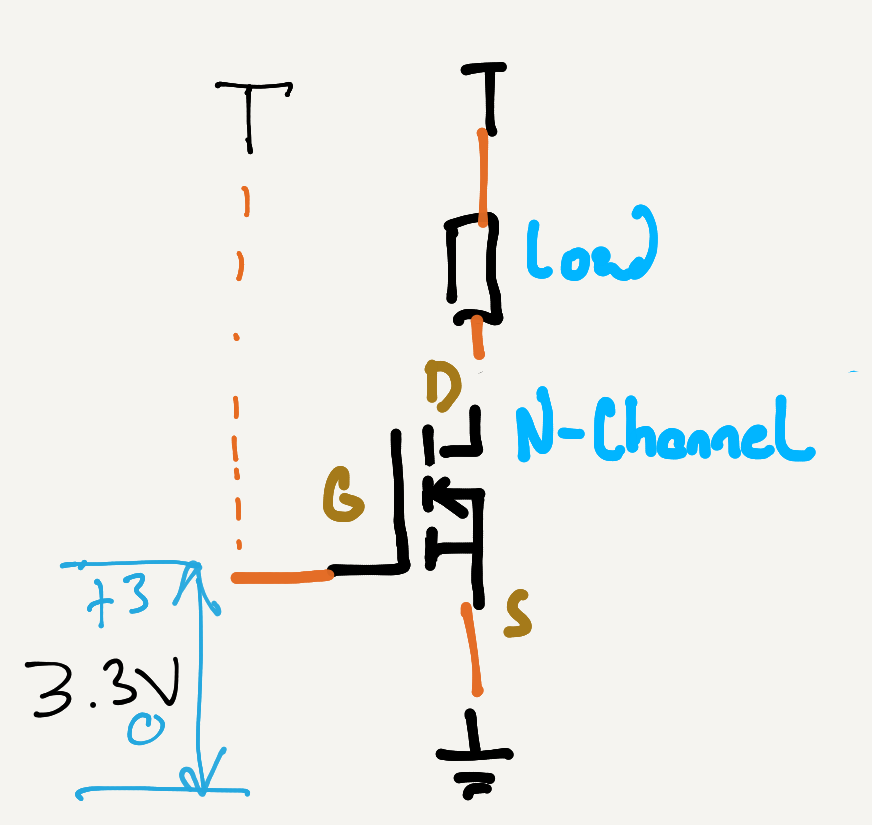 Low
D
N-Channel
G
+3
S
3.3V
0